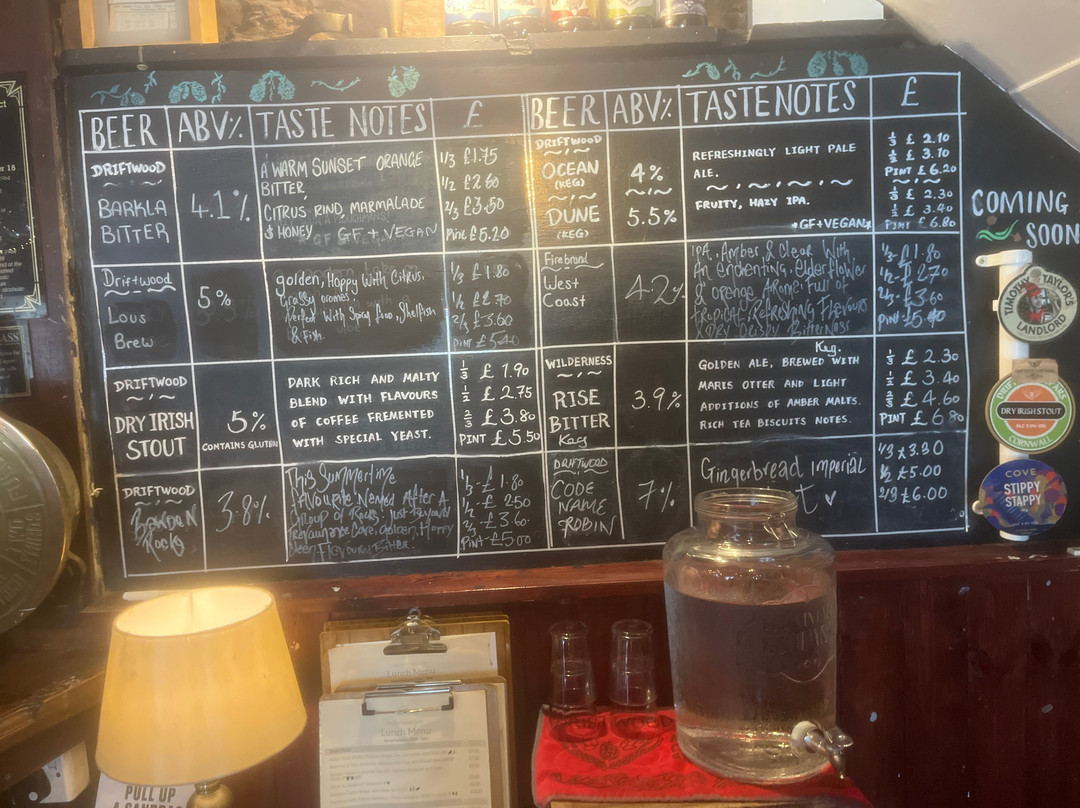 BEER ABV% TASTE NOTES £
DRIFTWOOD
BARKLA
BITTER
4.1%
A WARM SUNSET ORANGE
BITTER,
CITRUS RIND MARMALADE
& HONEY GF + VEGAN
1/3 £1.75
1/2 £2.60
2/3 £3.50
PINT £5.20
Driftwood
Lous
Brew
5%
golden, Hoppy With Citrus,
Grassy aromas.
Perfect With Spicy Food, Shellfish
& Fish.
1/3 £1.80
1/2 £2.70
2/3 £3.60
PINT £5.40
DRIFTWOOD
DRY IRISH
STOUT
5%
CONTAINS GLUTEN
DARK RICH AND MALTY
BLEND WITH FLAVOURS
OF COFFEE FREMENTED
WITH SPECIAL YEAST.
1/3 £1.90
1/2 £2.75
2/3 £3.80
PINT £5.50
DRIFTWOOD
BAWDEN
Rocks
3.8%
This Summertime
Favourite Named After A
Group of Rocks Just Beyond
Trevaunance Cove, Golden, Hoppy
Beer, Flavour Bitter.
1/3 - £1.80
1/2 - £2.50
2/3 - £3.60
PINT - £5.00
BEER ABV% TASTENOTES £
DRIFTWOOD
OCEAN
(KEG)
DUNE
(KEG)
4%
5.5%
REFRESHINGLY LIGHT PALE
ALE.
FRUITY, HAZY IPA.
*GF+VEGAN*
1/3 £2.10
1/2 £3.10
PINT £6.20
1/3 £2.30
1/2 £3.40
PINT £6.80
Firebrand
West
Coast
4.2%
IPA, Amber & Clear With
An enchenting, Elderflower
& orange Arome. Full of
tropical, Refreshing Flavours
& Dry Crispy Bitterness
1/3 - £1.80
1/2 - £2.70
2/3 - £3.60
PINT - £5.40
WILDERNESS
RISE
BITTER
Keg
3.9%
Keg.
GOLDEN ALE, BREWED WITH
MARIS OTTER AND LIGHT
ADDITIONS OF AMBER MALTS.
RICH TEA BISCUITS NOTES.
1/3 £2.30
1/2 £3.40
2/3 £4.60
PINT £6.80
DRIFTWOOD
CODE
NAME
ROBIN
7%
Gingerbread Imperial
1/3 £3.30
1/2 £5.00
2/3 £6.00
COMING
SOON
TIMOTHY TAYLOR'S
LANDLORD
DRY IRISH STOUT
CORNWALL
COVE
STIPPY
STAPPY
Lunch Menu
Lunch Menu
PULL UP